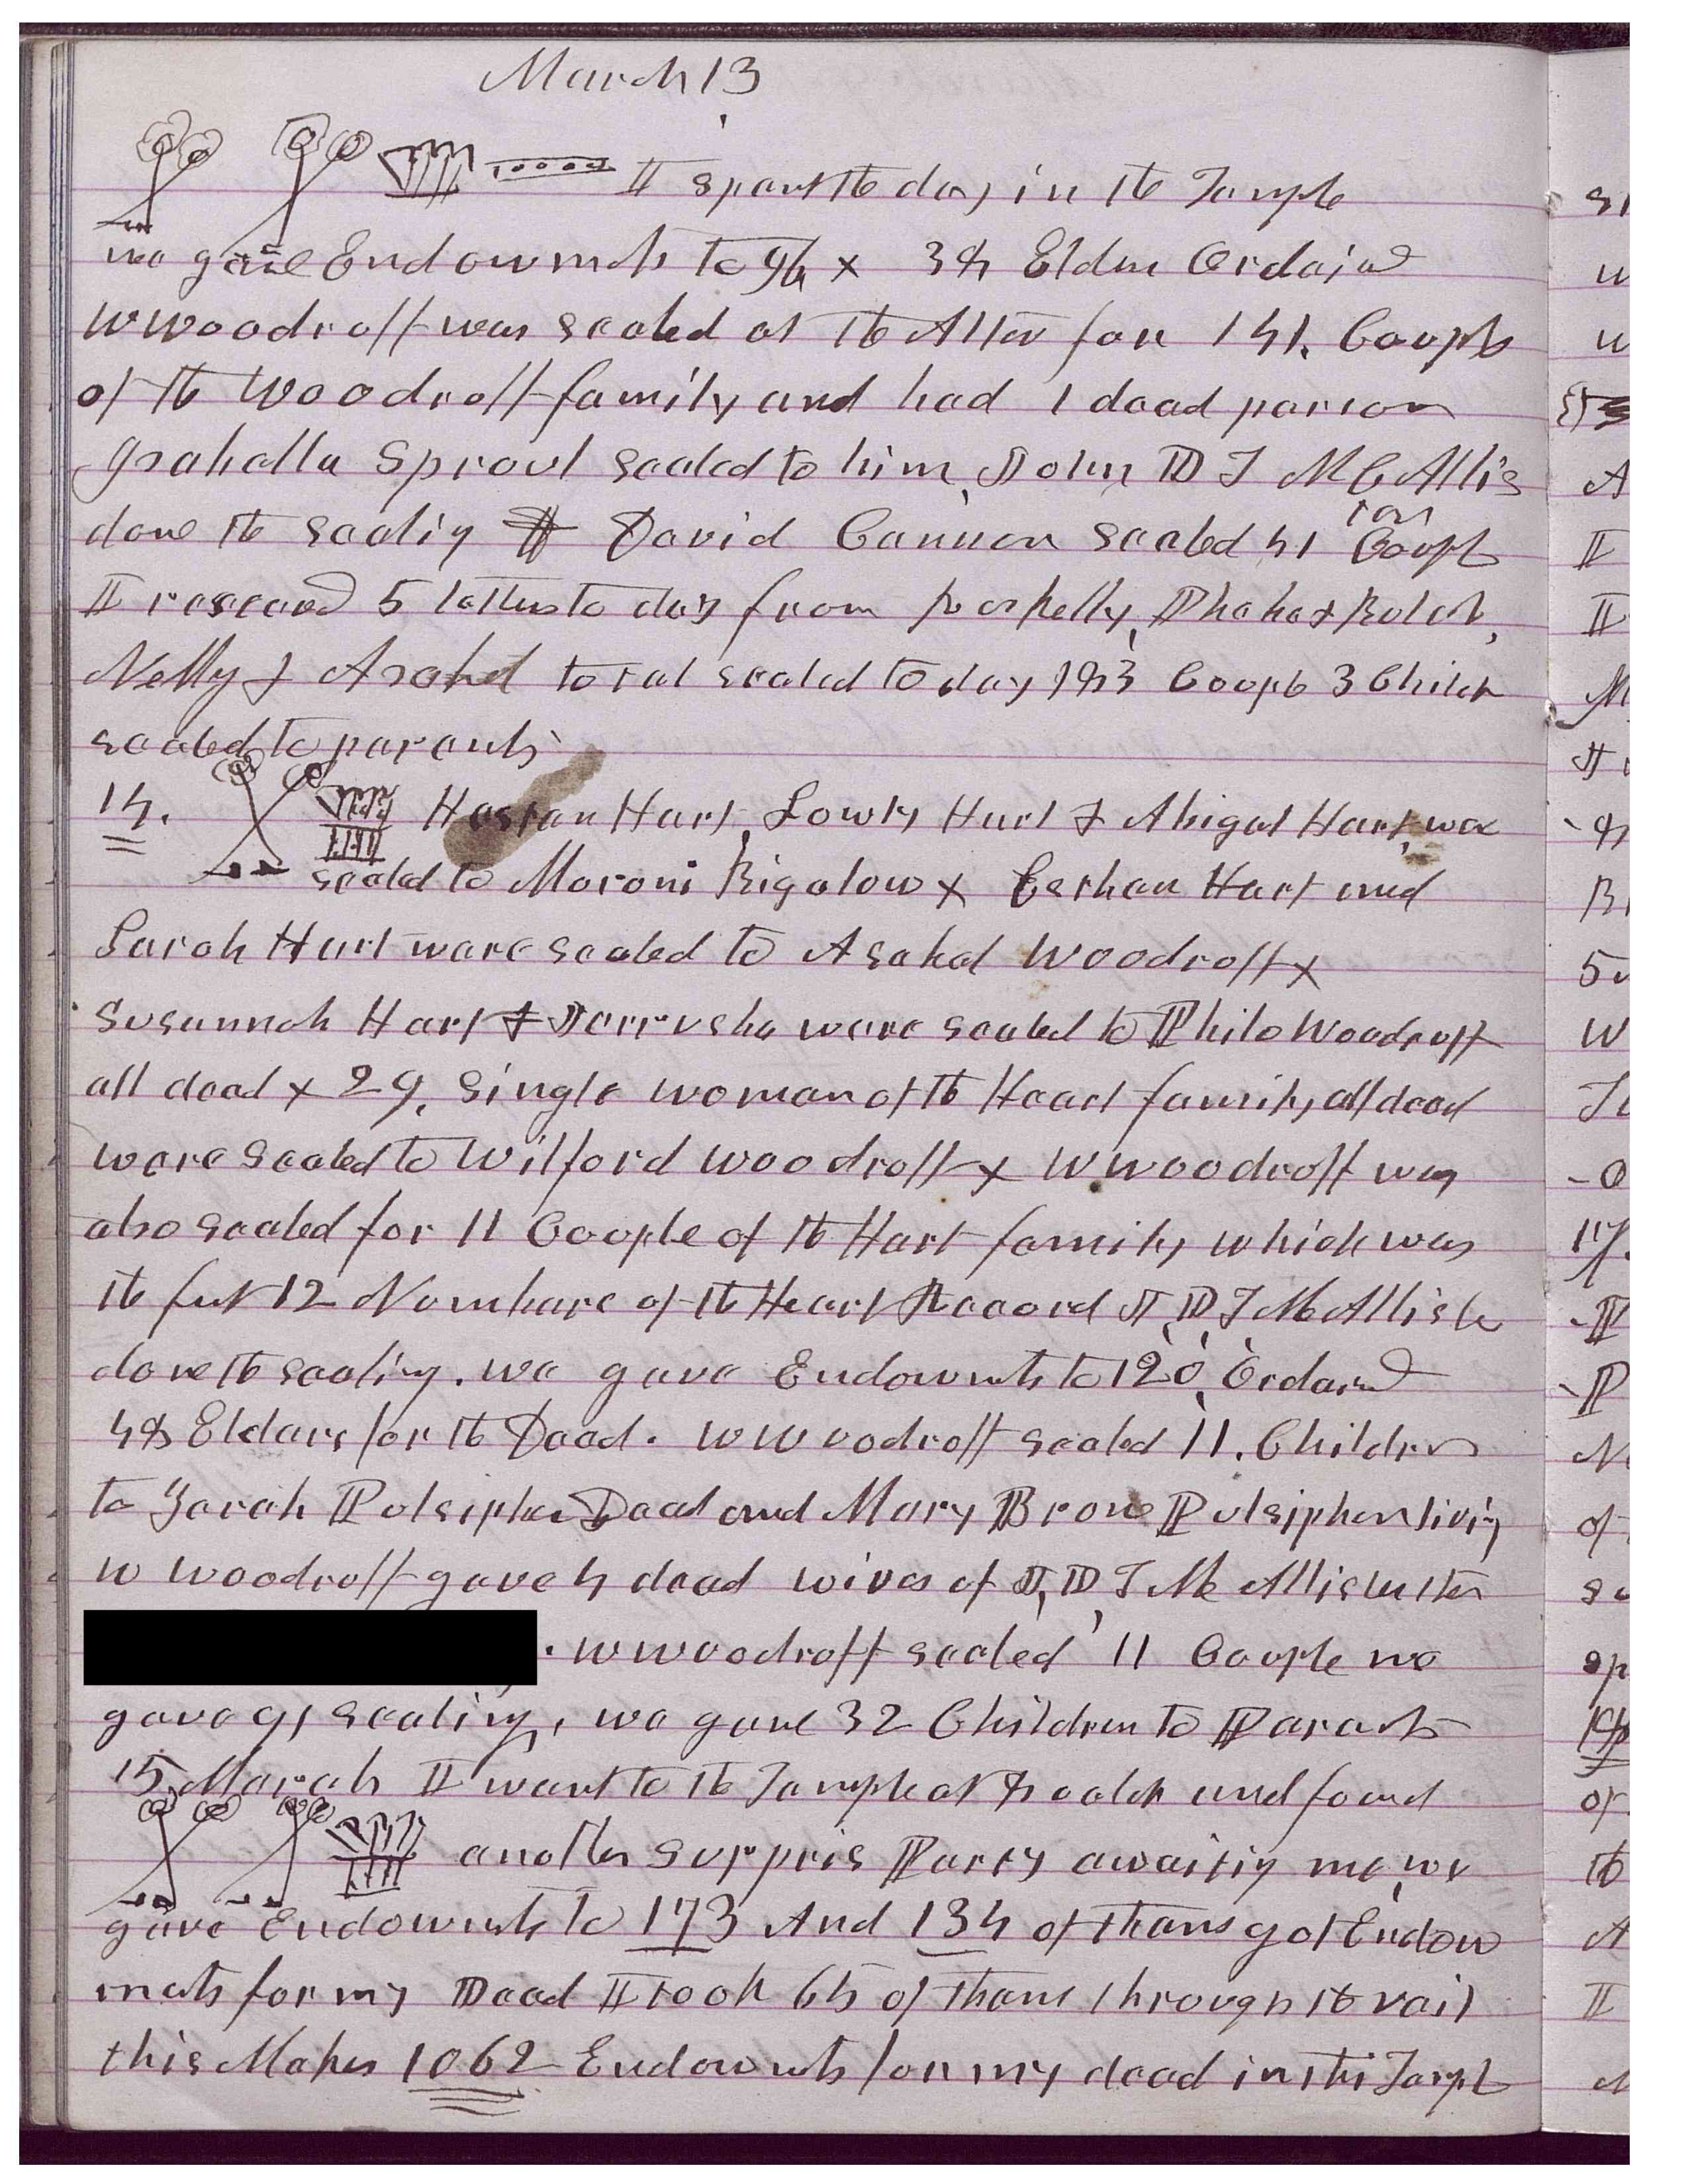 March 13
I spent the day in the Temple
we gave Endowmets to 96 x 38 Elders Ordaind
W Woodruff was sealed at the Alter for 141. Coupls
of the Woodruff family and had 1 dead person
Isabella Sproul sealed to him, John D T McAllis
done the sealig David Cannon sealed 41 Coupl
I received 5 letters to day from Phebe & Bulah,
Nelly & Asahel total sealed to day 183 Coupls 3 Childn
sealed to parents
14. Hart, Lowly Hart & Abigal Hart wer
sealed to Moroni Bigelow x Hart and
Sarah Hart ware sealed to Asahel Woodruff x
Susannah Hart & Jerrusha were sealed to Philo Woodruff
all dead x 29. Single women of the Heart family all dead
ware sealed to Wilford Woodruff x W Woodruff was
also sealed for 11 Couple of the Hart family which was
the fust 12 Numbers of the Heart Record J, D, T McAllister
done the sealing. we gave Endowmets to 120, Ordaind
48 Elders for the Dead. W Woodruff sealed 11. Children
to Zerah Pulsipher Dead and Mary Brown Pulsipher livig
W Woodruff gave 4 dead wives of J, D, T McAllister
. W Woodruff sealed 11 Couple we
gave 91 sealing, we gave 32 Children to Parents
15 March I went to the Temple at 8 oclok and found
another Surppris Party awaitig me, we
gave Endowmets to 173 And 134 of thans got Endow
mets for my Dead I took 65 of tham through the vail
this Makes 1062 Endowmets for my dead in this Templ